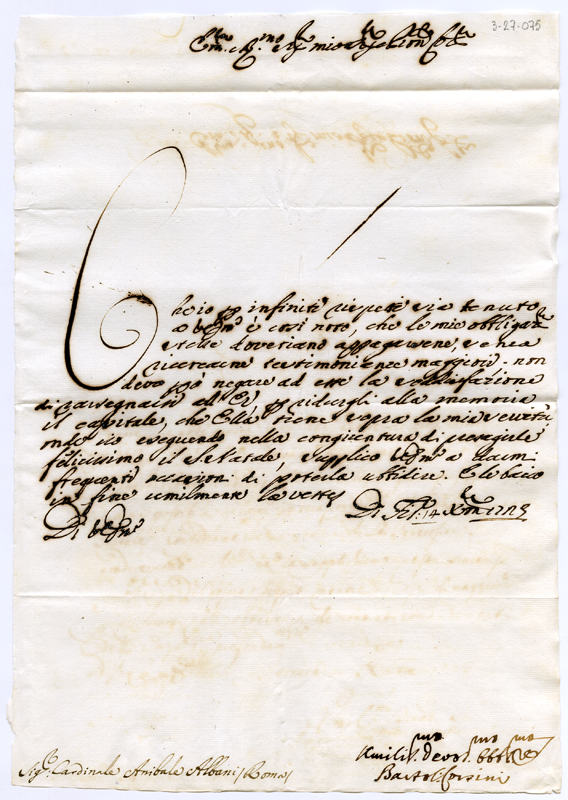 3-27-075
Em.mo e R.mo Sig.r mio
Che io per infiniti rispetti sia tenuto
a V. Em.za è così noto, che le mie obbligaz.ni
stesse doveriano appagarsene, senza
ricercarne testimonianze maggiori. non
devo però negare ad esse la sodisfazione
di rassegnarsi all' E.V. per ridurgli alla memoria
il capitale, che Ella tiene sopra la mia servitù,
onde io eseguendo nella congiuntura di presagirle
felicissimo il S. Natale, supplico V. Em.za a darmi
frequenti occasioni di poterla ubbidire. E le bacio
in fine umilmente la veste
Di V. Em.za
Di 14 Xm.bre
Umiliss.mo Devot.mo Obbl.mo
Sig.r Cardinale Anibale Albani Roma
Bartol. Corsini